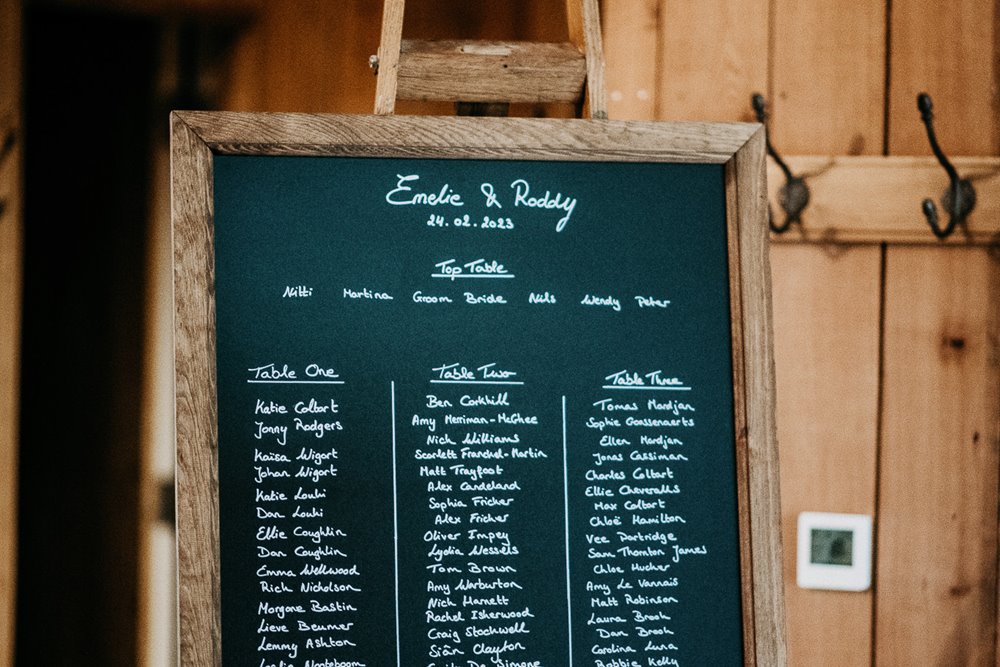 Emelie & Roddy
24.02.2023
Top Table
Nitti Martina Groom Bride Nils Wendy Peter
Table One
Katie Colbart
Jonny Rodgers
Kaisa Wigort
Johan Wigort
Katie Louki
Dan Louki
Ellie Coughlin
Dan Coughlin
Emma Wellwood
Rich Nicholson
Morgane Bastin
Lieve Beumer
Lemmy Ashton
Leslie Noteboom
Table Two
Ben Corkhill
Amy Merriman-McGhee
Nich Williams
Scarlett Franchel-Martin
Matt Trayfoot
Alex Candeland
Sophia Fricker
Alex Fricker
Oliver Impey
Lydia Wessels
Tom Brown
Amy Warburton
Nich Harnett
Rachel Isherwood
Craig Stockwell
Siân Clayton
De Simone
Table Three
Tomas Mardjan
Sophie Goossenaerts
Ellen Mardjan
Jonas Cassiman
Charles Coltart
Ellie Cheveralls
Max Coltart
Chloë Hamilton
Vee Partridge
Sam Thornton James
Chloe Hucker
Amy Le Vannais
Matt Robinson
Laura Brook
Dan Brook
Carolina Luna
Robbie Kelly